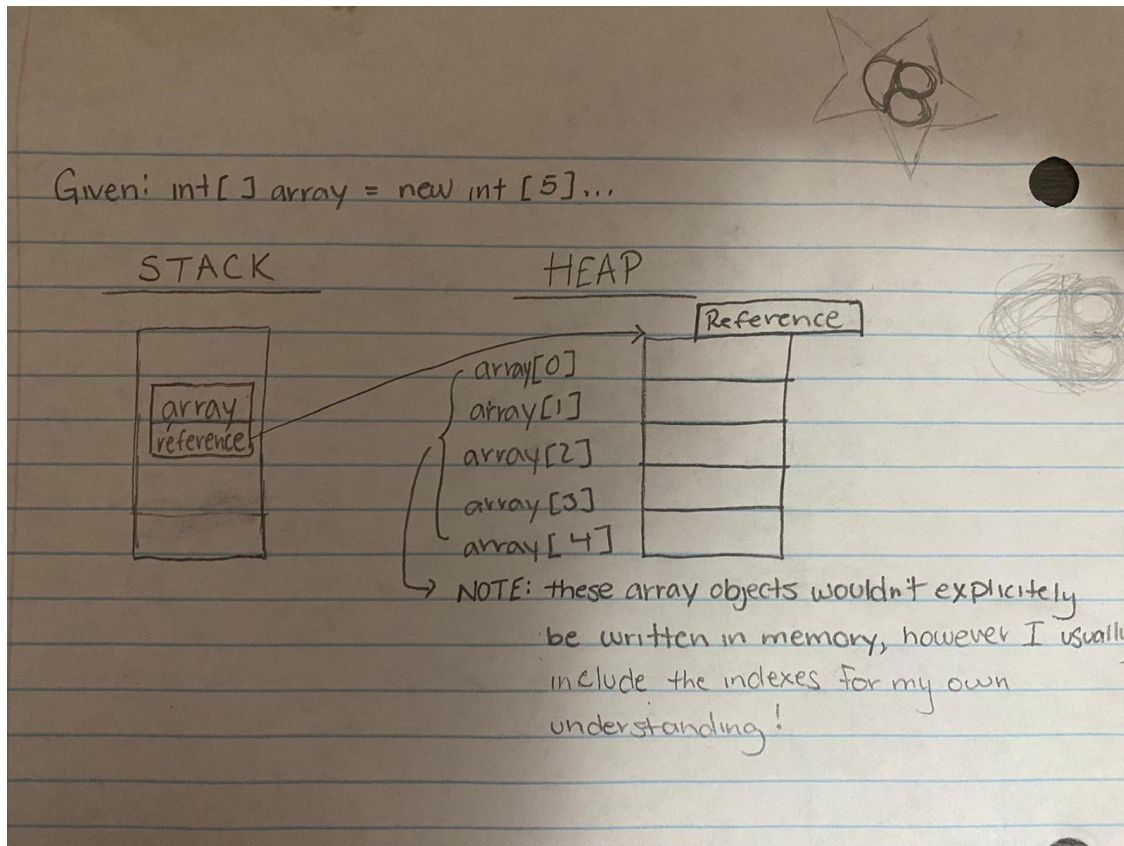 Given: int[ ] array = new int [5]...
STACK
HEAP
Reference
array
reference
array[0]
array[1]
array[2]
array[3]
array[4]
NOTE: these array objects wouldn't explicitely
be written in memory, however I usually
include the indexes for my own
understanding!